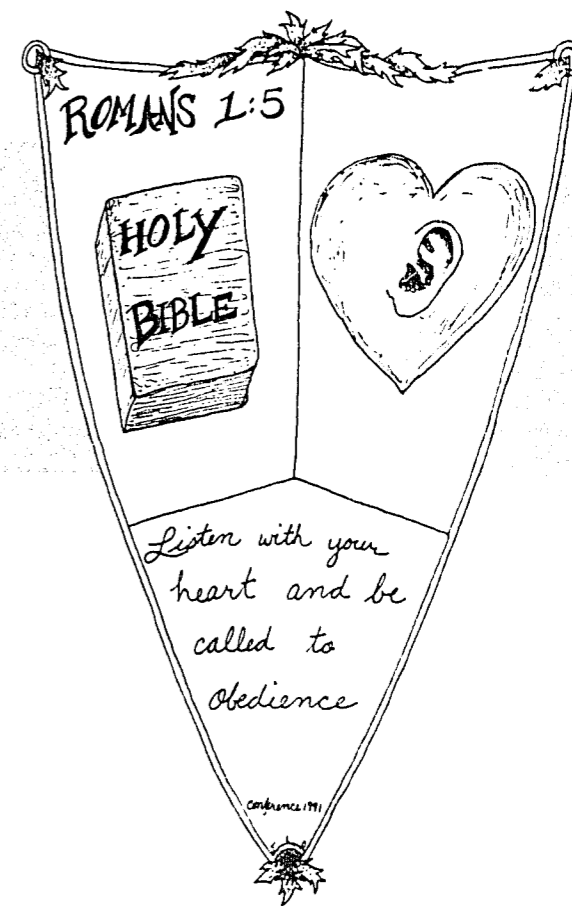 ROMANS 1:5
HOLY
BIBLE
Listen with your
heart and be
called to
obedience
Conference 1991